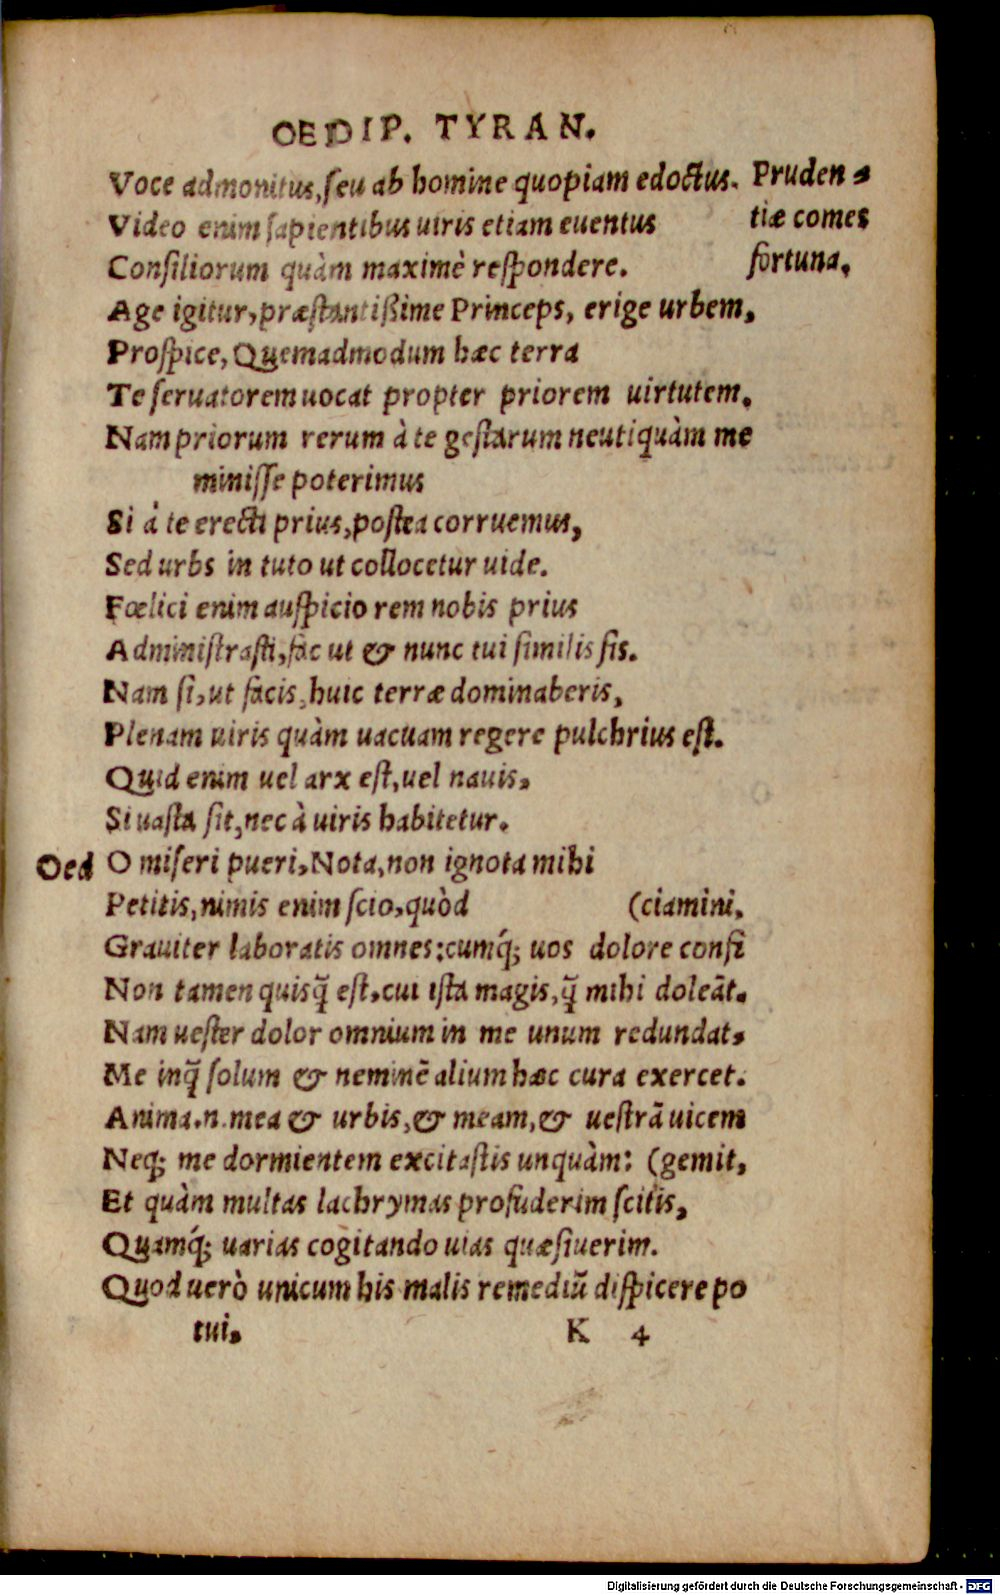 OEDIP. TYRAN.
Voce admonitus, seu ab homine quopiam edoctus. Pruden-
Video enim sapientibus uiris etiam euentus tiæ comes
Consiliorum quàm maximè respondere. fortuna.
Age igitur, præstantißime Princeps, erige urbem,
Prospice, Quemadmodum hæc terra
Te seruatorem uocat propter priorem uirtutem.
Nam priorum rerum à te gestarum neutiquàm me
minisse poterimus
Si à te erecti prius, postea corruemus,
Sed urbs in tuto ut collocetur uide.
Fœlici enim auspicio rem nobis prius
Administrasti, fac ut & nunc tui similis sis.
Nam si, ut facis, huic terræ dominaberis,
Plenam uiris quàm uacuam regere pulchrius est.
Quid enim uel arx est, uel nauis,
Si uasta sit, nec à uiris habitetur.
Oed O miseri pueri, Nota, non ignota mihi
Petitis, nimis enim scio, quòd (ciamini,
Grauiter laboratis omnes: cumq́; uos dolore confi
Non tamen quisq̃ est, cui ista magis, q̃ mihi doleãt.
Nam uester dolor omnium in me unum redundat,
Me inq̃ solum & neminẽ alium hæc cura exercet.
Anima.n.mea & urbis, & meam, & uestrã uicem
Neq; me dormientem excitastis unquàm: (gemit,
Et quàm multas lachrymas profuderim scitis,
Quamq́; uarias cogitando uias quæsiuerim.
Quod uerò unicum his malis remediũ dispicere po
tui. K 4
Digitalisierung gefördert durch die Deutsche Forschungsgemeinschaft - DFG